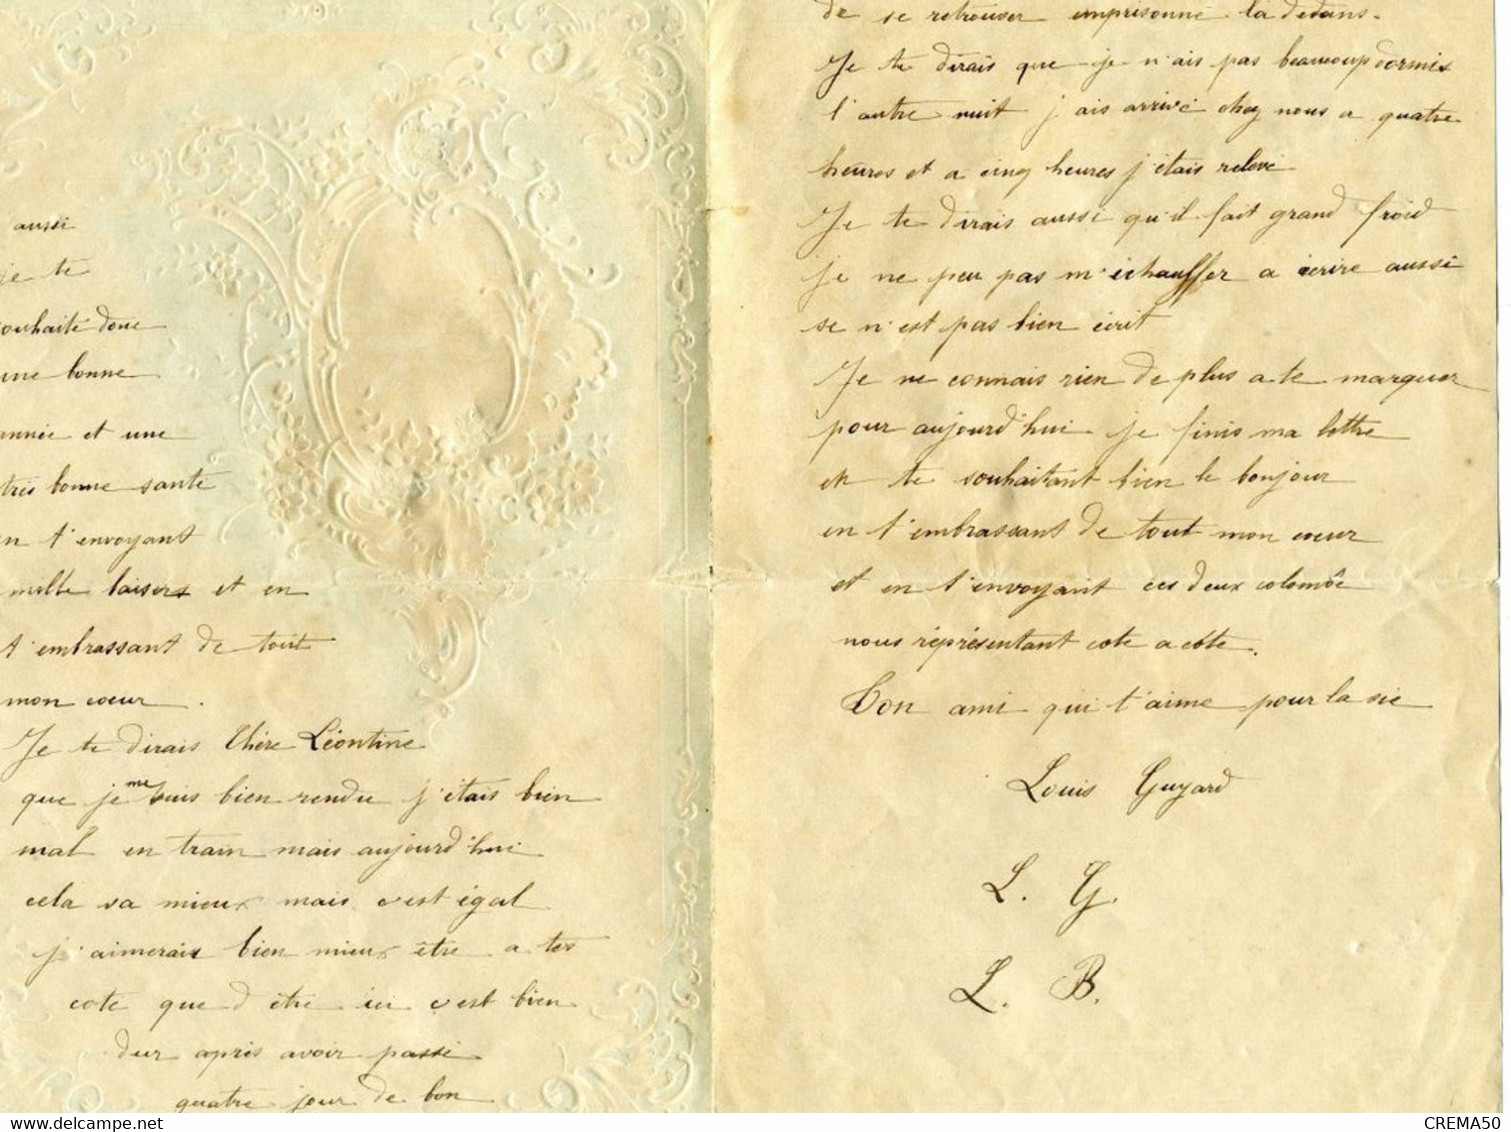 aussi
je te
souhaite donc
une bonne
année et une
très bonne santé
en t'envoyant
mille baisers et en
t'embrassant de tout
mon coeur.
Je te dirais Chère Léontine
que je me suis bien rendu j'étais bien
mal en train mais aujourd'hui
cela va mieux mais c'est égal
j'aimerais bien mieux être a tes
coté que d'être ici c'est bien
dur après avoir passé
quatre jour de bon
de se retrouver emprisonné la dedans.
Je te dirais que je n'ais pas beaucoup dormis
l'autre nuit j'ais arrivé chez nous a quatre
heures et a cinq heures j'étais relevé
Je te dirais aussi qu'il fait grand froid
je ne peu pas m'échauffer a écrire aussi
se n'est pas bien écrit
Je ne connais rien de plus a te marquer
pour aujourd'hui je finis ma lettre
en te souhaitant bien le bonjour
en t'embrassant de tout mon coeur
et en t'envoyant ces deux colombe
nous réprésentant cote a cote.
Ton ami qui t'aime pour la vie
Louis Guyard
L. G.
L. B.
CREMA50